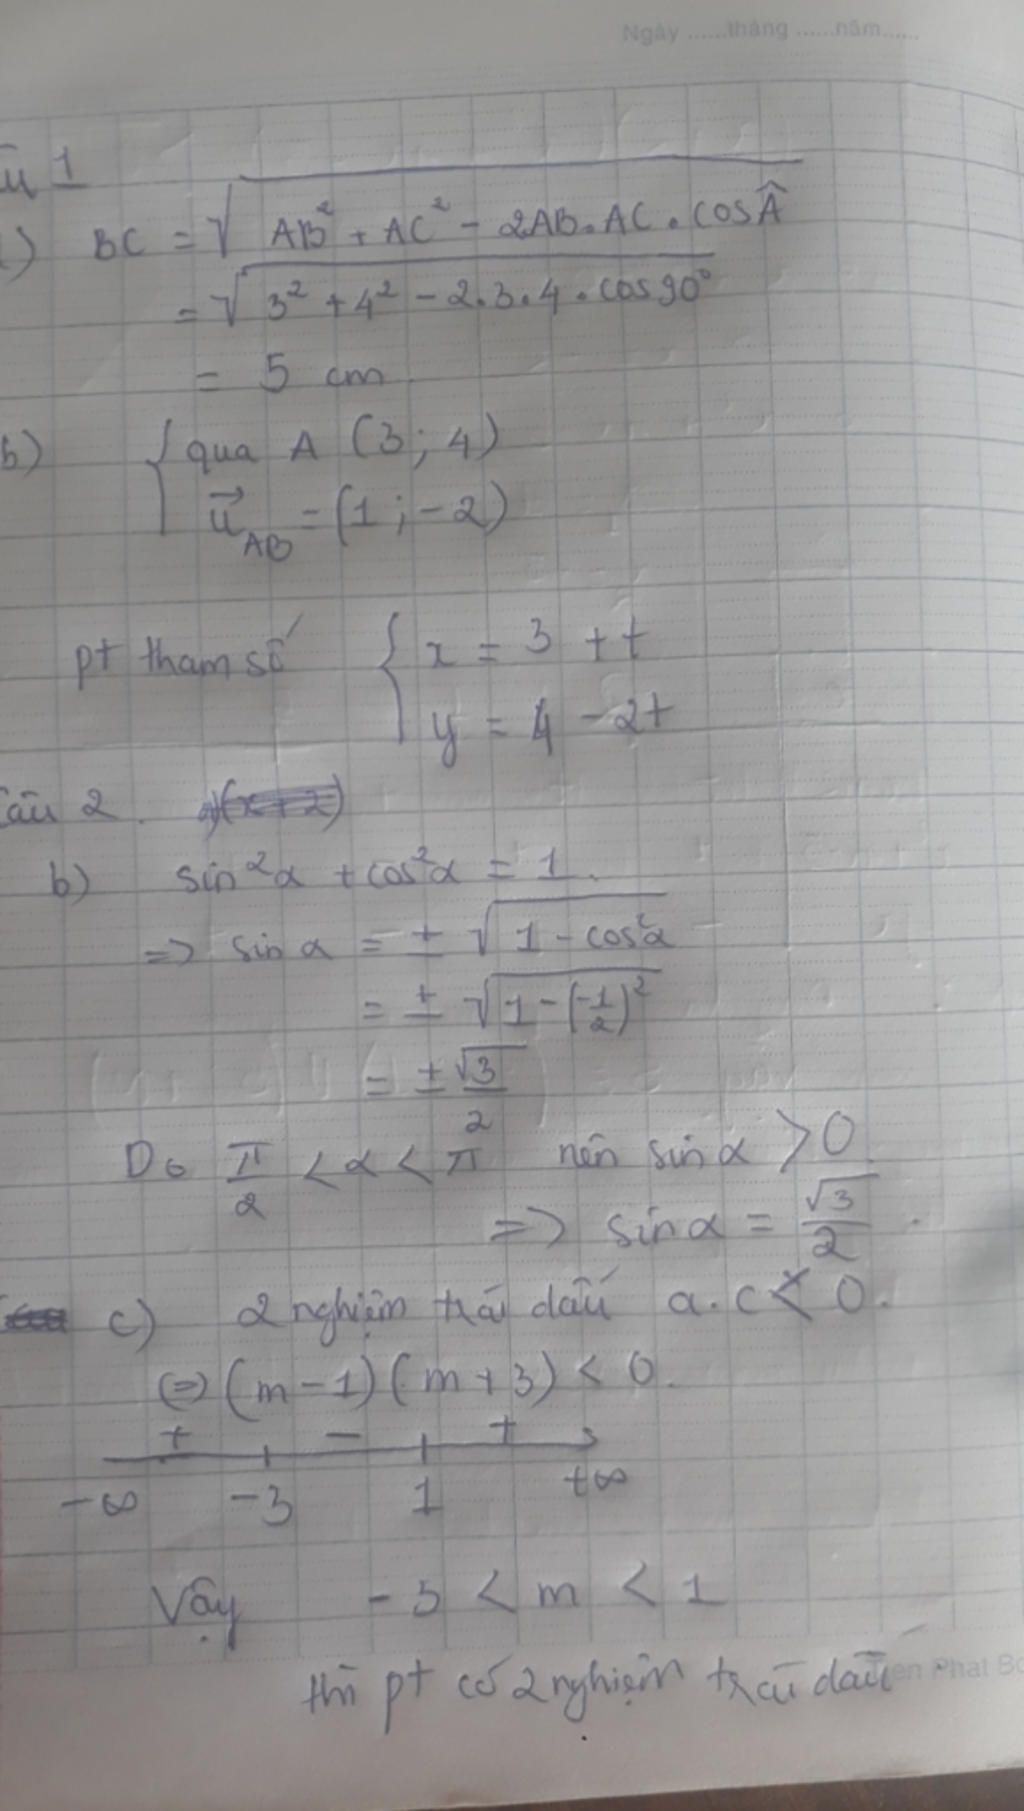 Ngày ......tháng ......năm......
1
BC = √(AB² + AC² - 2AB.AC.cosÂ)
= √(3² + 4² - 2.3.4.cos90°)
= 5 cm
b) { qua A (3; 4)
u⃗_AB = (1; -2)
pt tham số { x = 3 + t
y = 4 - 2t
Câu 2.
b) sin²α + cos²α = 1.
=> sin α = ± √(1 - cos²α)
= ± √(1 - (-1/2)²)
= ± √3/2
Do π/2 < α < π nên sin α > 0
=> sin α = √3/2.
c) 2 nghiệm trái dấu a.c < 0.
(=) (m-1)(m+3) < 0.
+ - +
-∞ -3 1 +∞
Vậy -3 < m < 1
thì pt có 2 nghiệm trái dấu